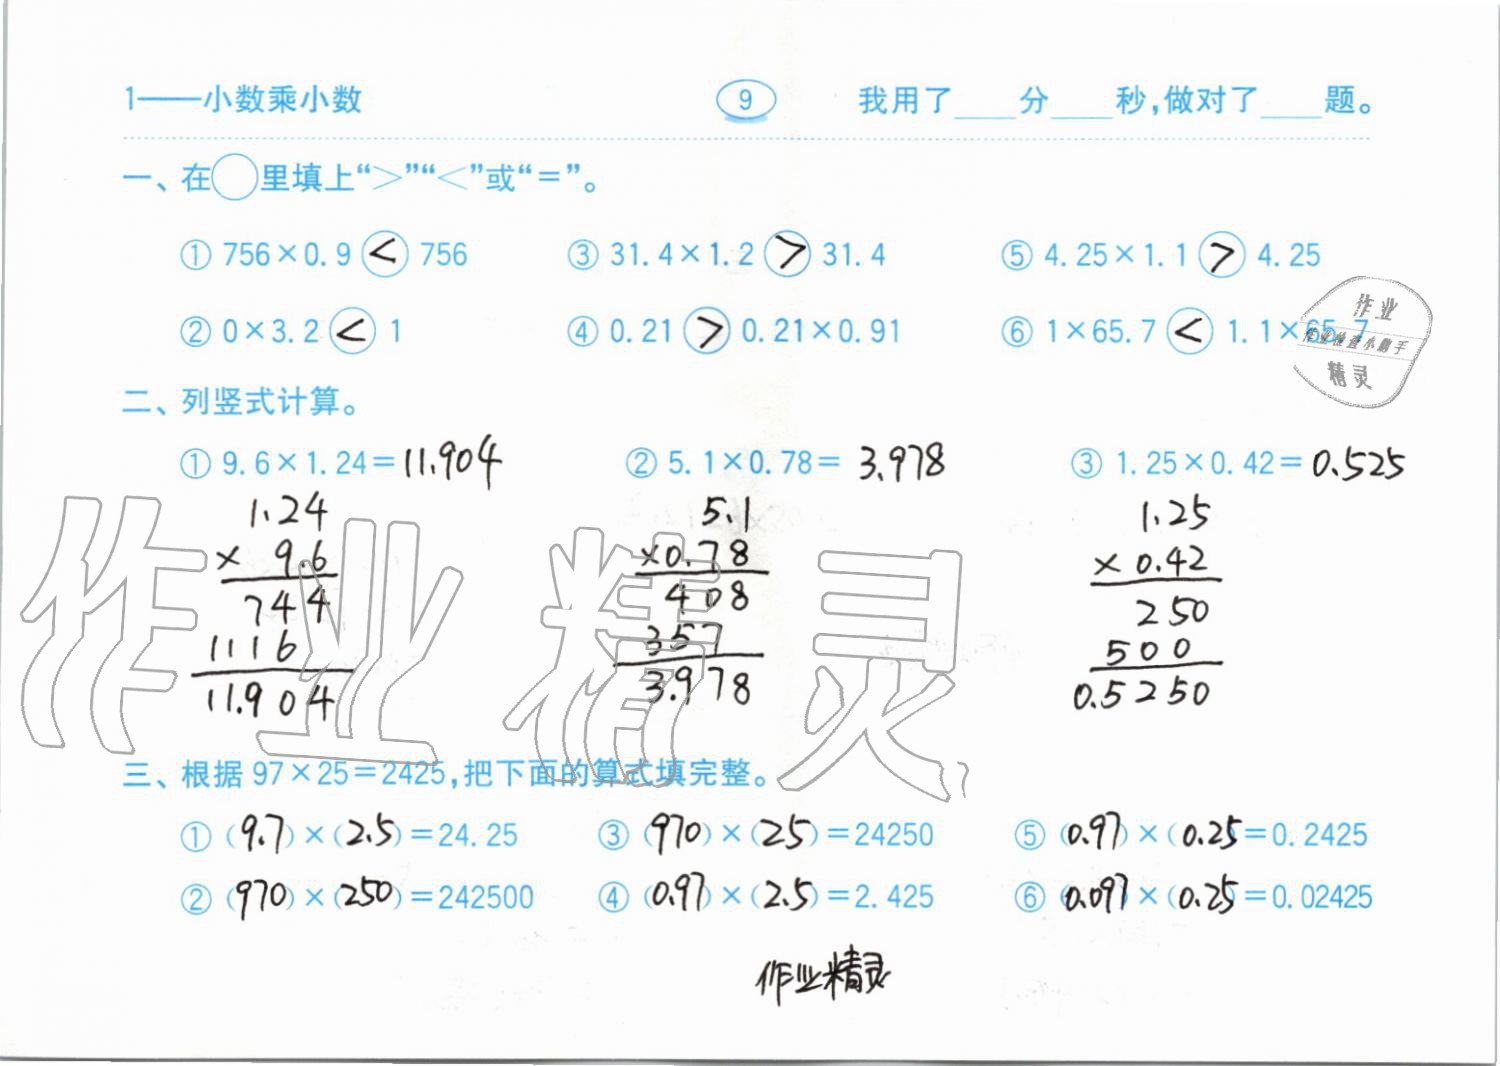 1——小数乘小数 9 我用了____分____秒,做对了____题。
一、在○里填上“>”“<”或“=”。
① 756×0.9 < 756 ③ 31.4×1.2 > 31.4 ⑤ 4.25×1.1 > 4.25
② 0×3.2 < 1 ④ 0.21 > 0.21×0.91 ⑥ 1×65.7 < 1.1×65.7
作业
作业检查小助手
精灵
二、列竖式计算。
① 9.6×1.24=11.904 ② 5.1×0.78= 3.978 ③ 1.25×0.42=0.525
1.24 5.1 1.25
× 9.6 ×0.78 × 0.42
744 408 250
1116 357 500
11.904 3.978 0.5250
作业精灵
三、根据 97×25=2425,把下面的算式填完整。
① (9.7)×(2.5)=24.25 ③ (970)×(25)=24250 ⑤ (0.97)×(0.25)=0.2425
② (970)×(250)=242500 ④ (0.97)×(2.5)=2.425 ⑥ (0.097)×(0.25)=0.02425
作业精灵